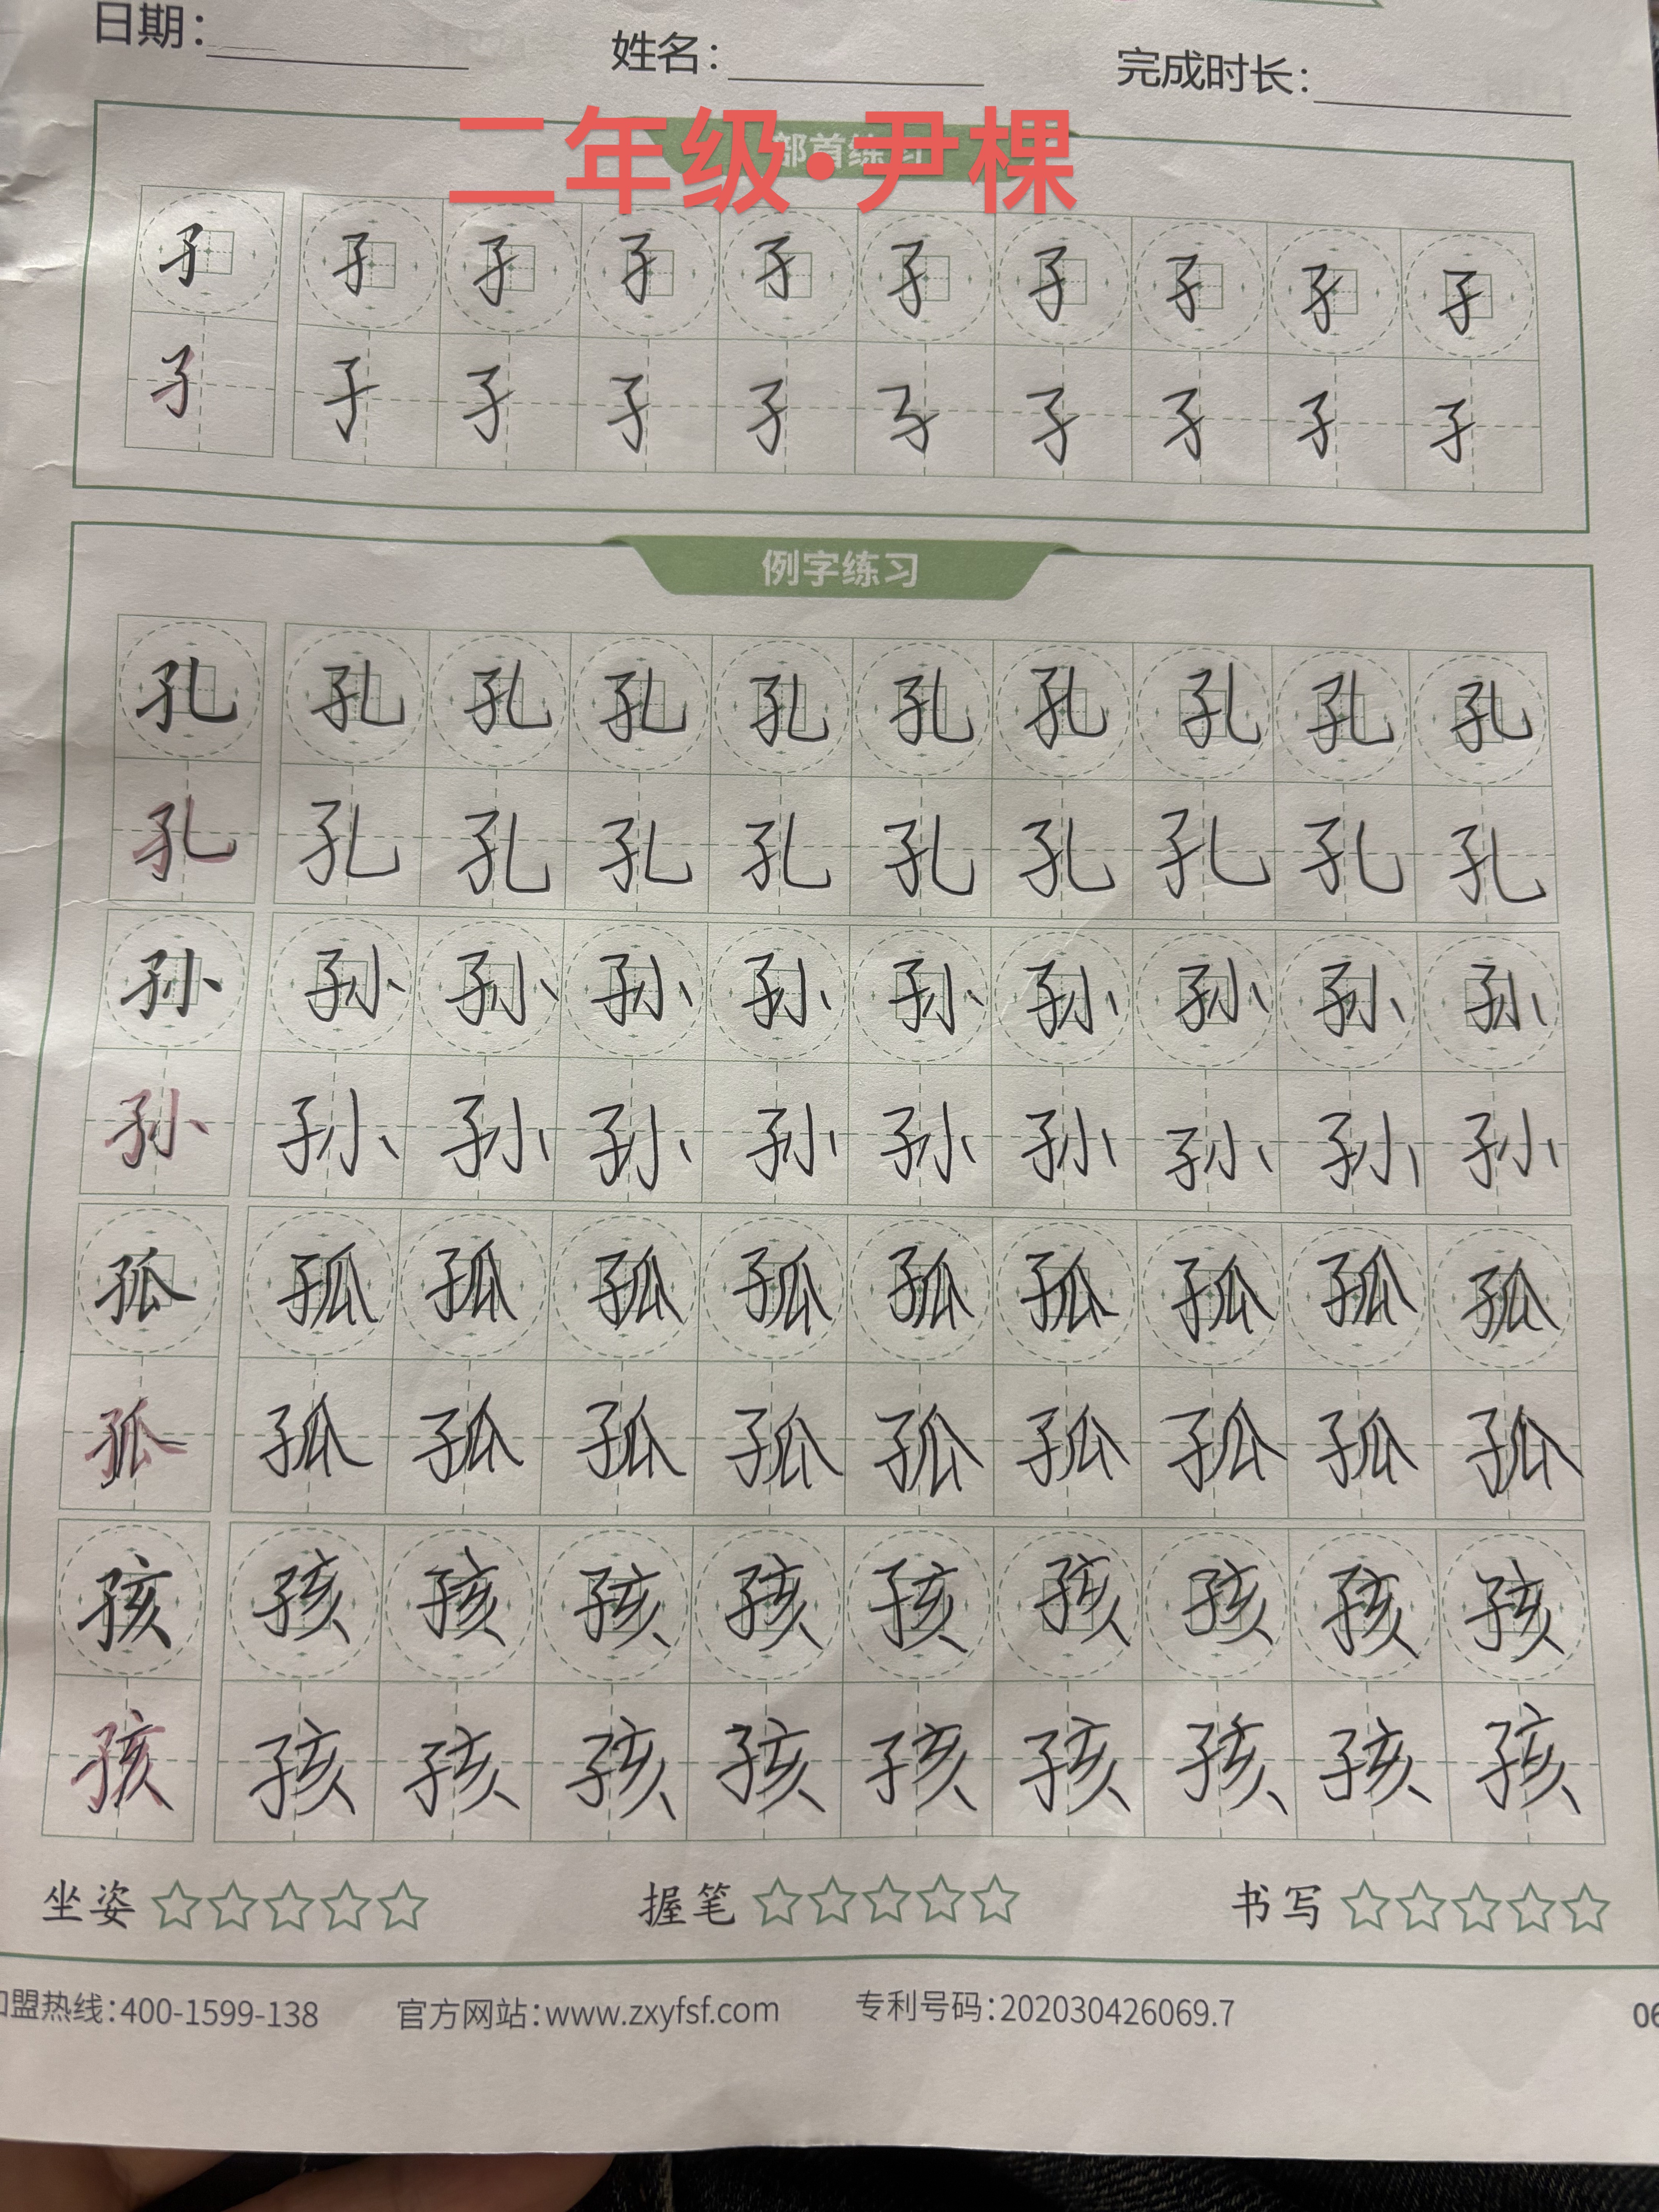 日期： 姓名： 完成时长：
二年级·尹棵
部首练习
孑 孑 孑 孑 孑 孑 孑 孑 孑 孑
孑 孑 孑 孑 孑 孑 孑 孑 孑 孑
例字练习
孔 孔 孔 孔 孔 孔 孔 孔 孔 孔
孔 孔 孔 孔 孔 孔 孔 孔 孔 孔
孙 孙 孙 孙 孙 孙 孙 孙 孙 孙
孙 孙 孙 孙 孙 孙 孙 孙 孙 孙
孤 孤 孤 孤 孤 孤 孤 孤 孤 孤
孤 孤 孤 孤 孤 孤 孤 孤 孤 孤
孩 孩 孩 孩 孩 孩 孩 孩 孩 孩
孩 孩 孩 孩 孩 孩 孩 孩 孩 孩
坐姿 握笔 书写
加盟热线：400-1599-138 官方网站：www.zxyfsf.com 专利号码：202030426069.7